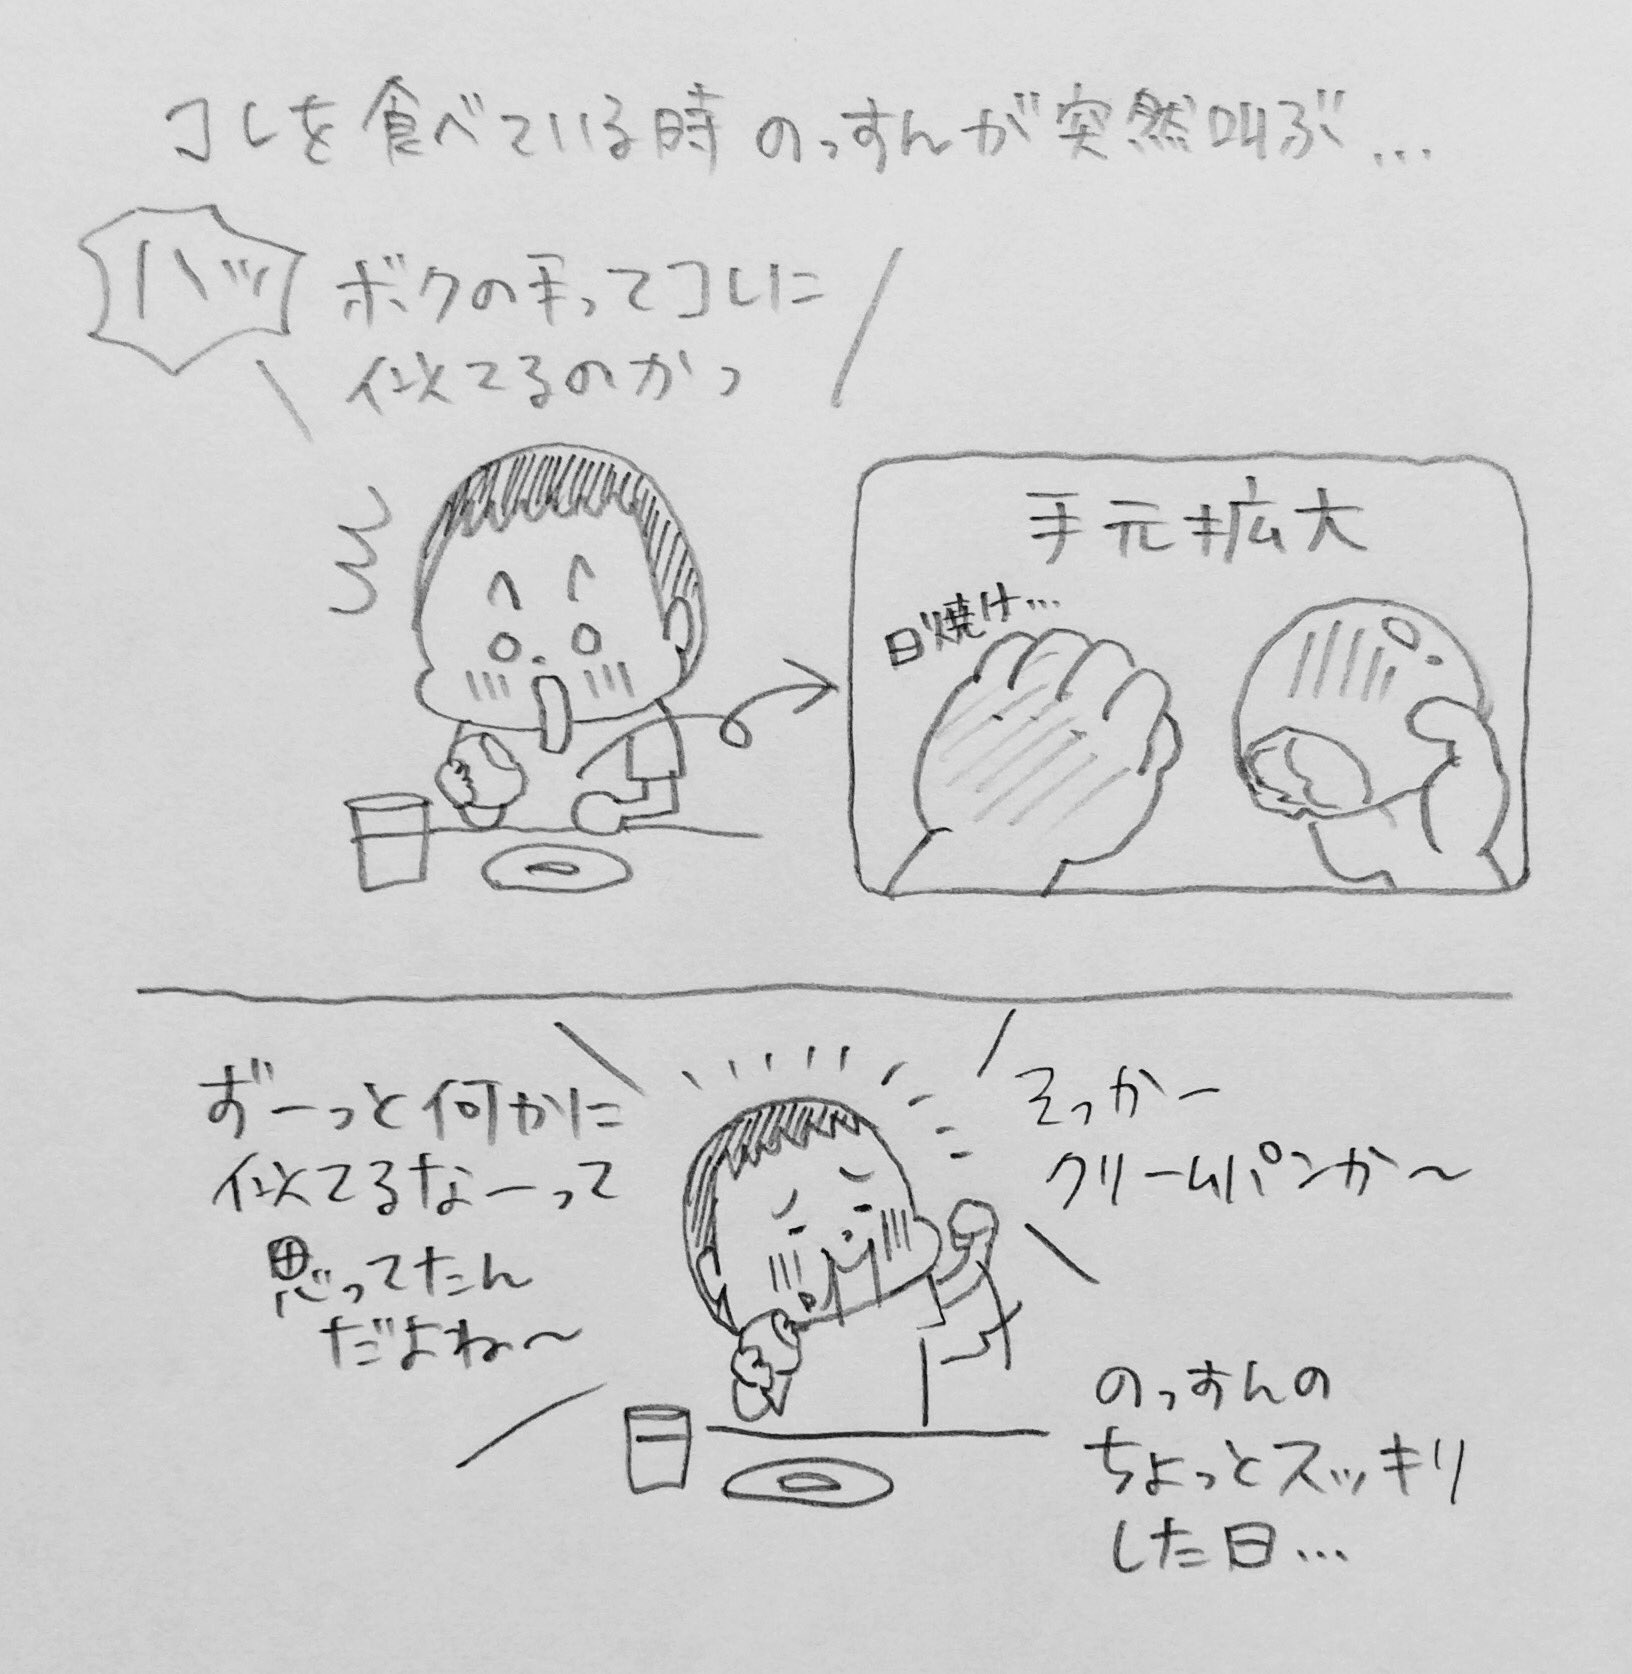 コレを食べている時 のっすんが突然叫ぶ…
ハッ
ボクの手ってコレに
似てるのかっ
手元拡大
日焼け…
ずーっと何かに
似てるなーって
思ってたん
だよね〜
そっかー
クリームパンか〜
のっすんの
ちょっとスッキリ
した日…